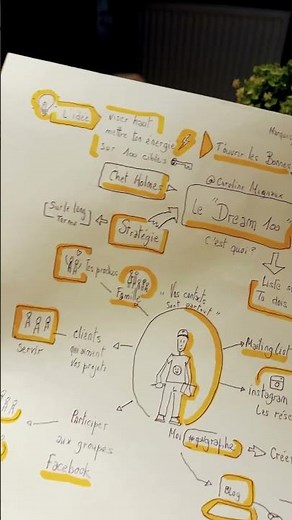 L'idée
viser haut
mettre ton énergie
sur 100 cibles
T'ouvrir les Bonnes
Chet Holmes
@Caroline
Le "Dream 100"
C'est quoi ?
[Sur le long
Terme]
Stratégie
Tes proches
Famille
"Vos contacts
sont partout"
Liste
Tu dois
clients
qui aiment
Vos projets
servir
Mailing List
instagram
Les rése
Participer
aux groupes
Facebook
Moi
Créer
Blog